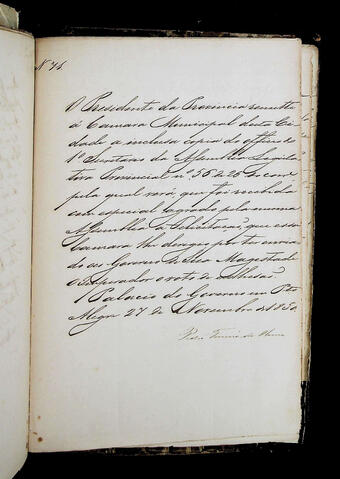 Nº 74.
O Presidente da Provincia remette
á Camara Municipal desta Ci-
dade a inclusa copia do officio do
1º Secretario da Assembléa Legisla-
tiva Provincial nº 35 de 25 do cor.e
pela qual verá, que foi recebida
com especial agrado pela mesma
Assembléa a felicitação, que essa
Camara lhe dirigio por ter enviado
ao Governo de Sua Magestade
o Imperador o voto de adhesão.
Palacio do Governo em Pto
Alegre 27 de Novembro de 1850